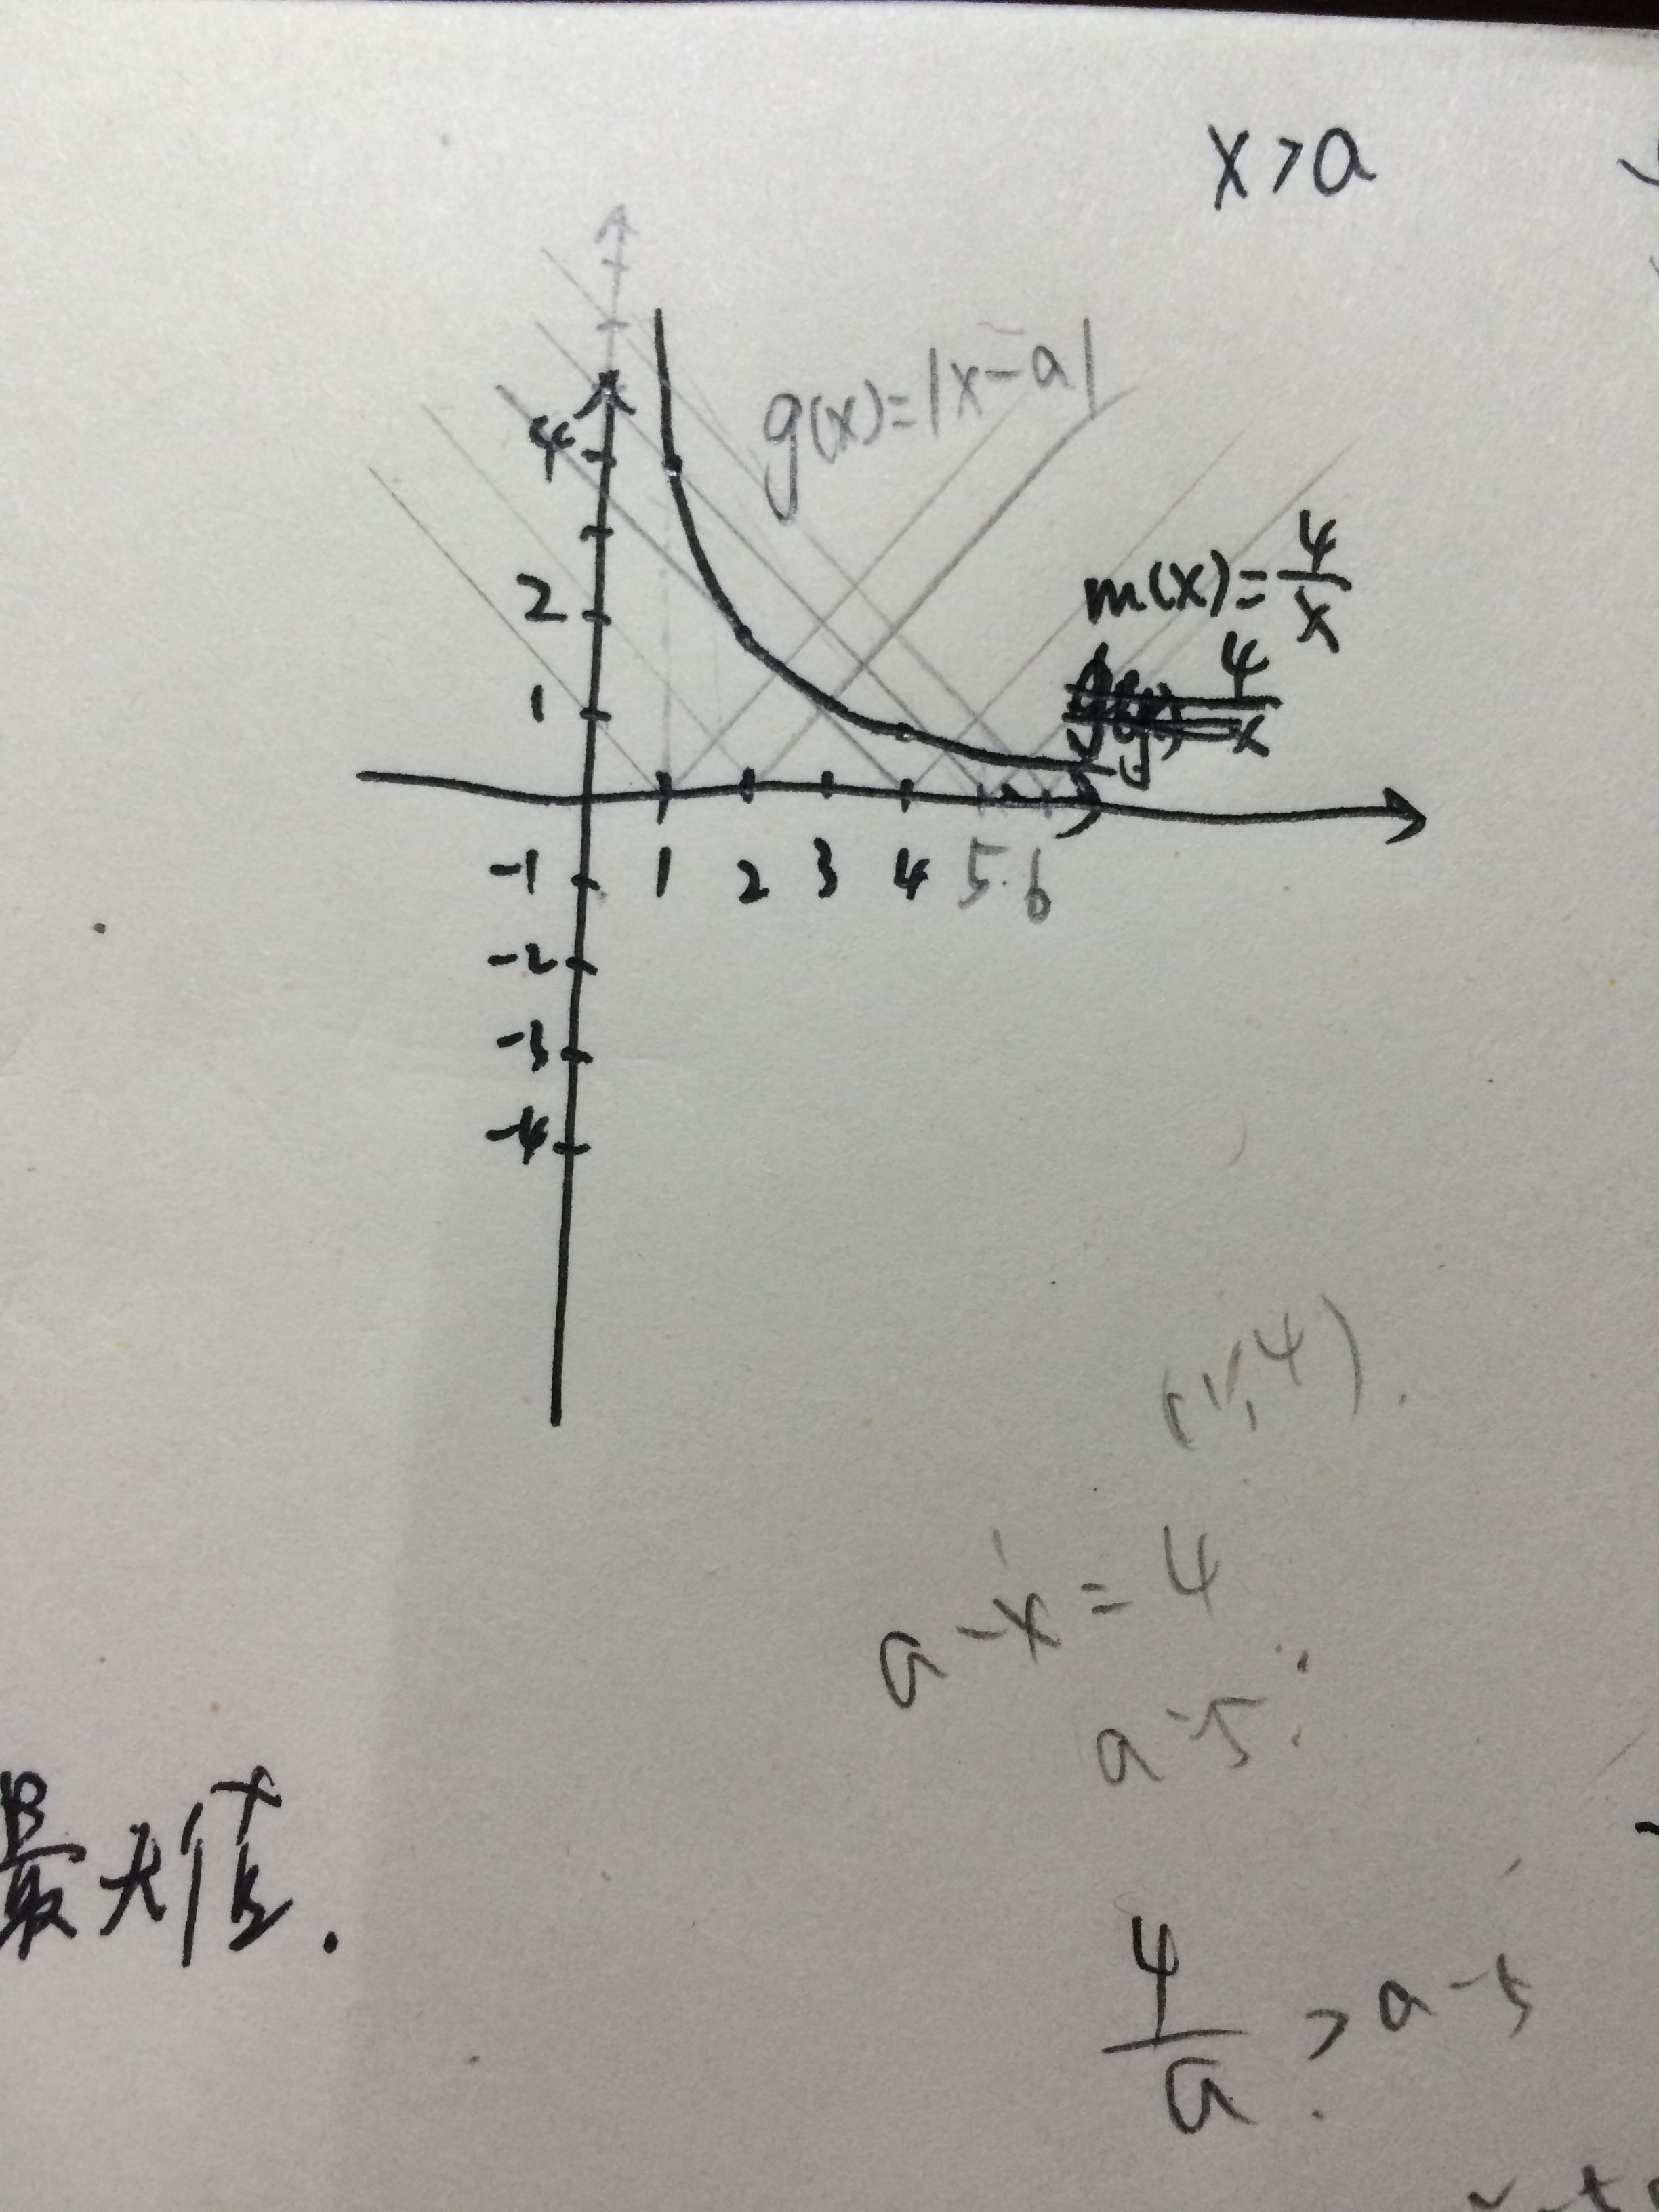 x>a
g(x)=|x-a|
4
m(x)=4/x
2
1
1 2 3 4 5 6
-1
-2
-3
-4
(1,4).
a-x=4
a=5
最大值.
4/a > a-5